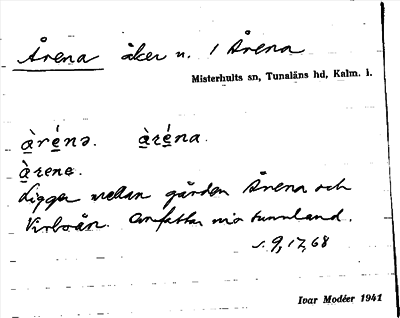 Årena åker n. / Årena
Misterhults sn, Tunaläns hd, Kalm. l.
àrénə. àréna.
àrene.
Ligger mellan gården Årena och
Virboån. Omfattar nio tunnland.
s. 9, 17, 68
Ivar Modéer 1941